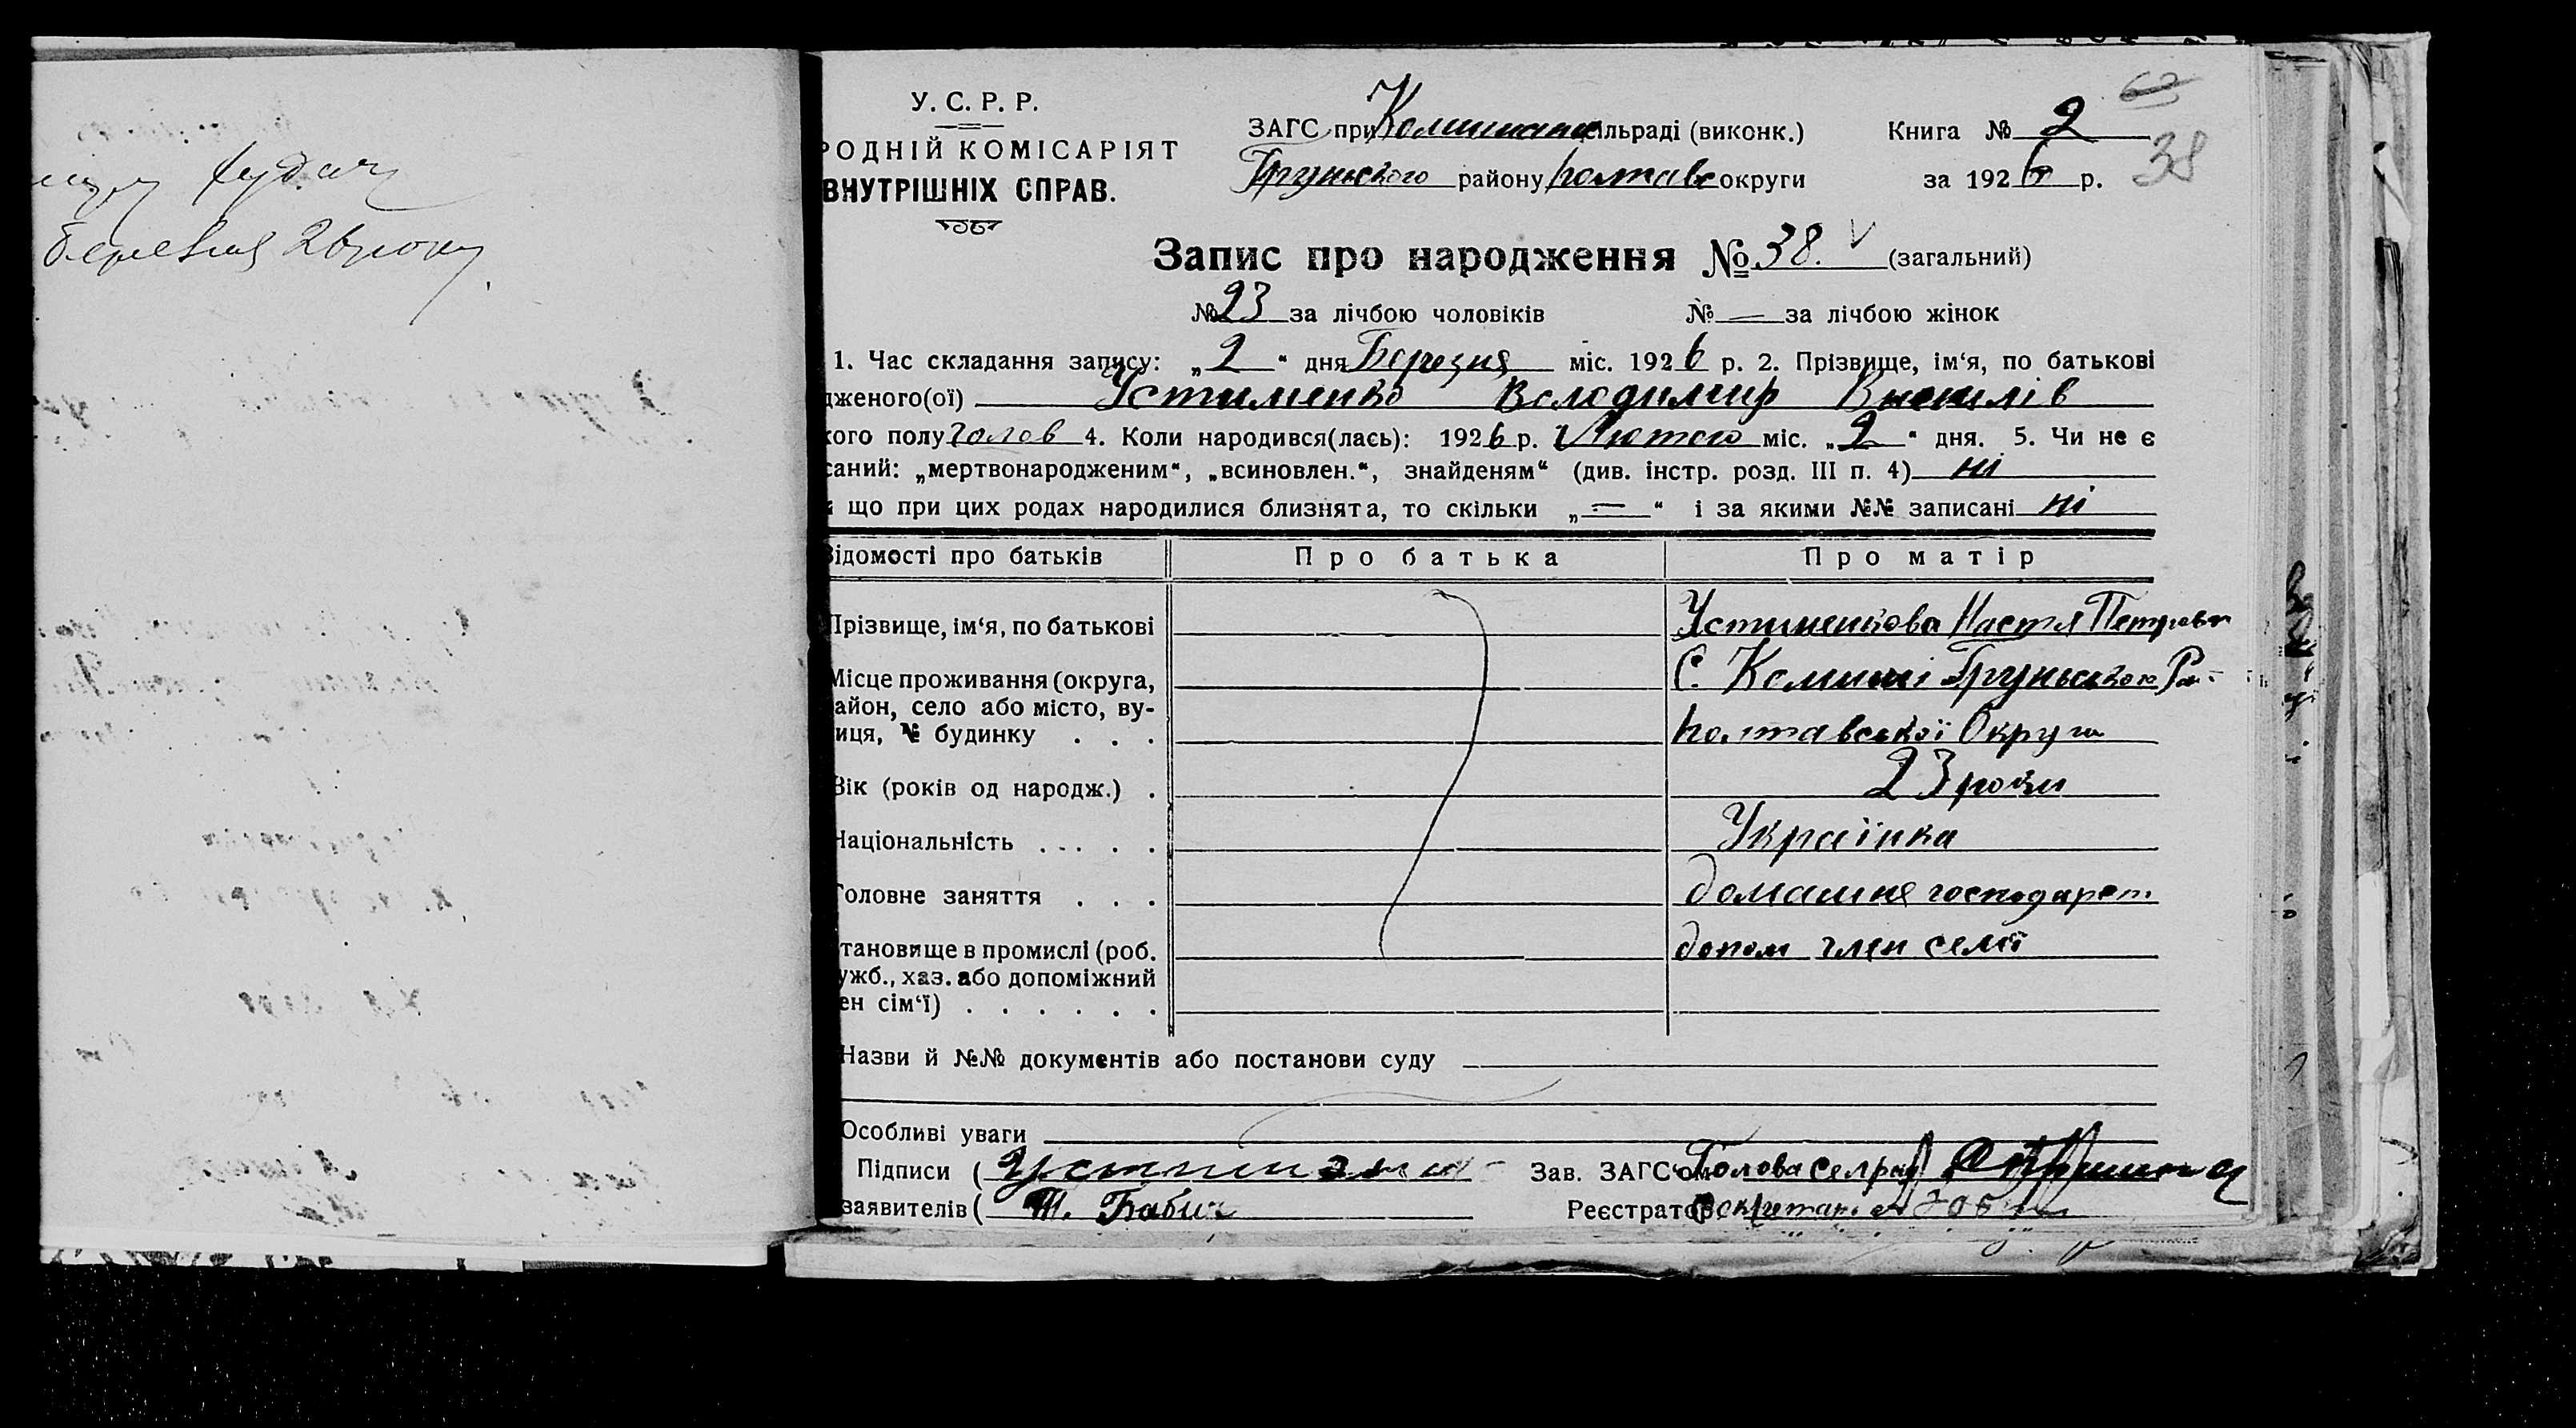 Березня 26 року
У. С. Р. Р.
РОДНІЙ КОМІСАРІЯТ
ВНУТРІШНІХ СПРАВ.
ЗАГС при Комишан ільраді (виконк.)
Грунського району Полтавс округи
Книга № 2
за 1926 р.
38
Запис про народження № 38. V (загальний)
№ 23 за лічбою чоловіків № — за лічбою жінок
1. Час складання запису: „2“ дня Березня міс. 1926 р. 2. Прізвище, ім‘я, по батькові
дженого(ої) Устименко Володимир Василів
кого полу Чолов 4. Коли народився(лась): 1926 р. Лютого міс. „2“ дня. 5. Чи не є
саний: „мертвонародженим“, „всиновлен.“, знайденям“ (див. інстр. розд. III п. 4) ні
що при цих родах народилися близнята, то скільки „—“ і за якими №№ записані ні
Відомості про батьків Про батька Про матір
Прізвище, ім‘я, по батькові Устименкова Настя Петровн
Місце проживання (округа, С. Комиші Грунського Ра
айон, село або місто, ву-
иця, № будинку . . . Полтавської Округи
Вік (років од народж.) . 23 роки
Національність . . . . . Українка
Головне заняття . . . домашня господарст.
тановище в промислі (роб. допом член семї
ужб., хаз. або допоміжний
ен сім‘ї) . . . . . .
Назви й №№ документів або постанови суду
Особливі уваги
Підписи ( Зав. ЗАГС‘ом Голова селрад
заявителів ( Т. Бабич Реєстратор Секретар